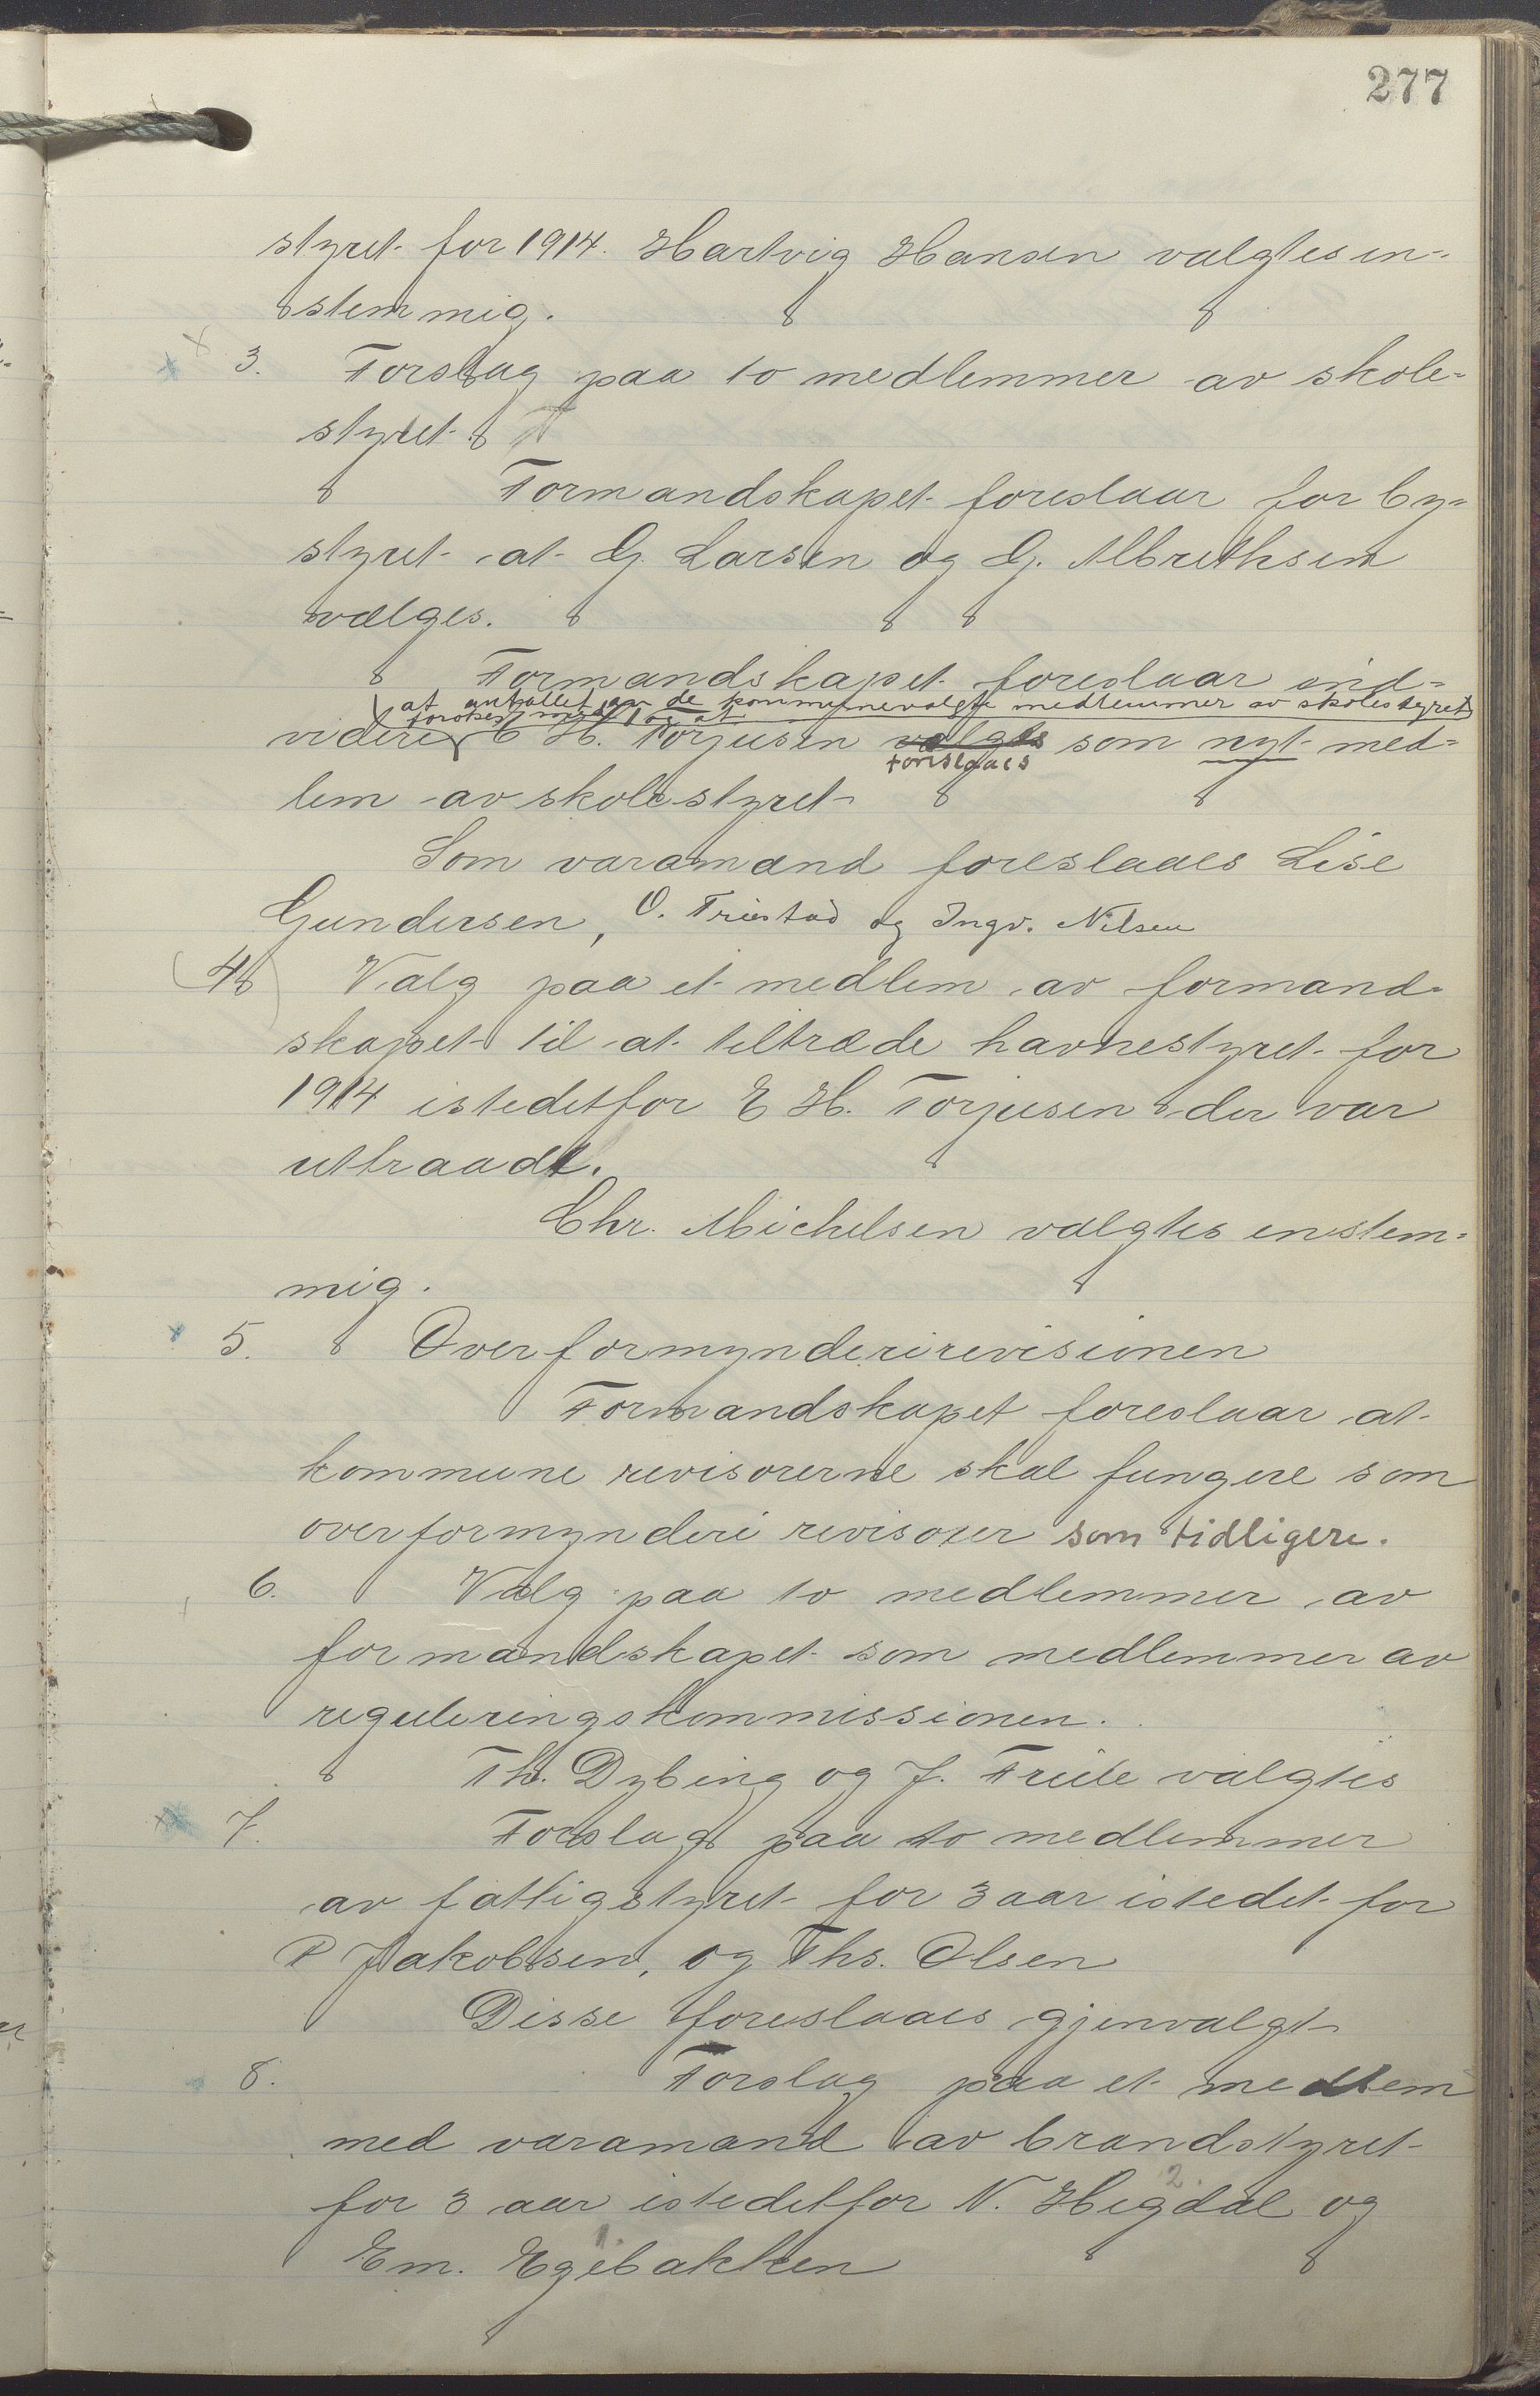 277
styret for 1914. Hartvig Hansen valgtes en-
stemmig.
3. Forslag paa to medlemmer av skole=
styret.
Formandskapet foreslaar for by=
styret at G. Larsen og G. Albrethsen
vælges.
Formandskapet foreslaar end=
at antallet av de kommunevalgte medlemmer av skolestyret
forøkes med 1 og at
videre E H. Torjusen valgtes som nyt med=
foreslaaes
lem av skolestyret
Som varamænd foreslaaes Lise
Gundersen, O. Friestad og Ingv. Nilsen
4. Valg paa et medlem av formand=
skapet til at tiltræde havnestyret for
1914 istedetfor E H. Torjusen der var
uttraadt.
Chr. Michelsen valgtes enstem=
mig.
5. Overformynderirevisionen
Formandskapet foreslaar at
kommune revisorerne skal fungere som
overformynderi revisorer som tidligere.
6. Valg paa to medlemmer av
formandskapet som medlemmer av
reguleringskommissionen.
Th. Dybing og J. Friile valgtes
7. Forslag paa to medlemmer
av fattigstyret for 3 aar istedet for
P Jakobsen, og Ths. Olsen
Disse foreslaaes gjenvalgt
8. Forslag paa et medlem
med varamand av brandstyret
for 3 aar istedetfor N. Hegdal og
2.
1.
Em. Egebakken